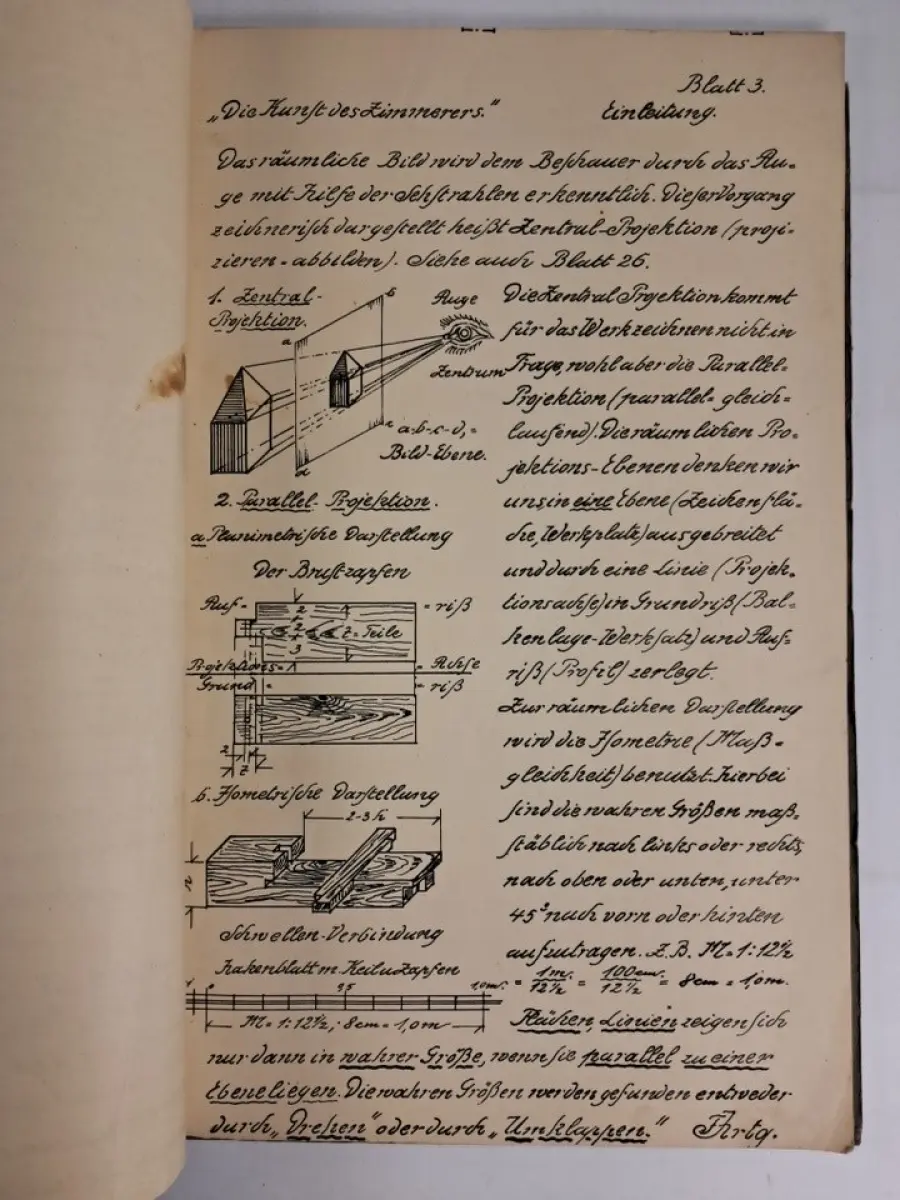 Blatt 3.
„Die Kunst des Zimmerers." Einleitung.
Das räumliche Bild wird dem Beschauer durch das Au-
ge mit Hilfe der Sehstrahlen erkenntlich. Dieser Vorgang
zeichnerisch dargestellt heißt Zentral-Projektion (proji-
zieren = abbilden). Siehe auch Blatt 26.
1. Zentral-
Projektion.
b
a
Auge
Zentrum
c
d
a-b-c-d, =
Bild-Ebene.
2. Parallel-Projektion.
a Planimetrische Darstellung
Der Brustzapfen
Auf- = riß
2
2
3
z = Teile
Projektions- = Achse
Grund = riß
2
z
b. Isometrische Darstellung
2-3 h
h
Schwellen-Verbindung
Hakenblatt m. Keil u. Zapfen
0 0,5 1,0 m.
M = 1:12½; 8cm = 1,0 m
Die Zentral Projektion kommt
für das Werkzeichnen nicht in
Frage, wohl aber die Parallel-
Projektion (parallel = gleich-
laufend). Die räumlichen Pro-
jektions-Ebenen denken wir
uns in eine Ebene (Zeichenflä-
che, Werkplatz) ausgebreitet
und durch eine Linie (Projek-
tionsachse) in Grundriß (Bal-
kenlage-Werksatz) und Auf-
riß (Profil) zerlegt.
Zur räumlichen Darstellung
wird die Isometrie (Maß-
gleichheit) benutzt. Hierbei
sind die wahren Größen maß-
stäblich nach links oder rechts,
nach oben oder unten, unter
45° nach vorn oder hinten
aufzutragen. Z.B. M = 1:12½
= 1m. / 12½ = 100cm. / 12½ = 8cm = 1,0m.
Flächen, Linien zeigen sich
nur dann in wahrer Größe, wenn sie parallel zu einer
Ebene liegen. Die wahren Größen werden gefunden entweder
durch „Drehen" oder durch „Umklappen."